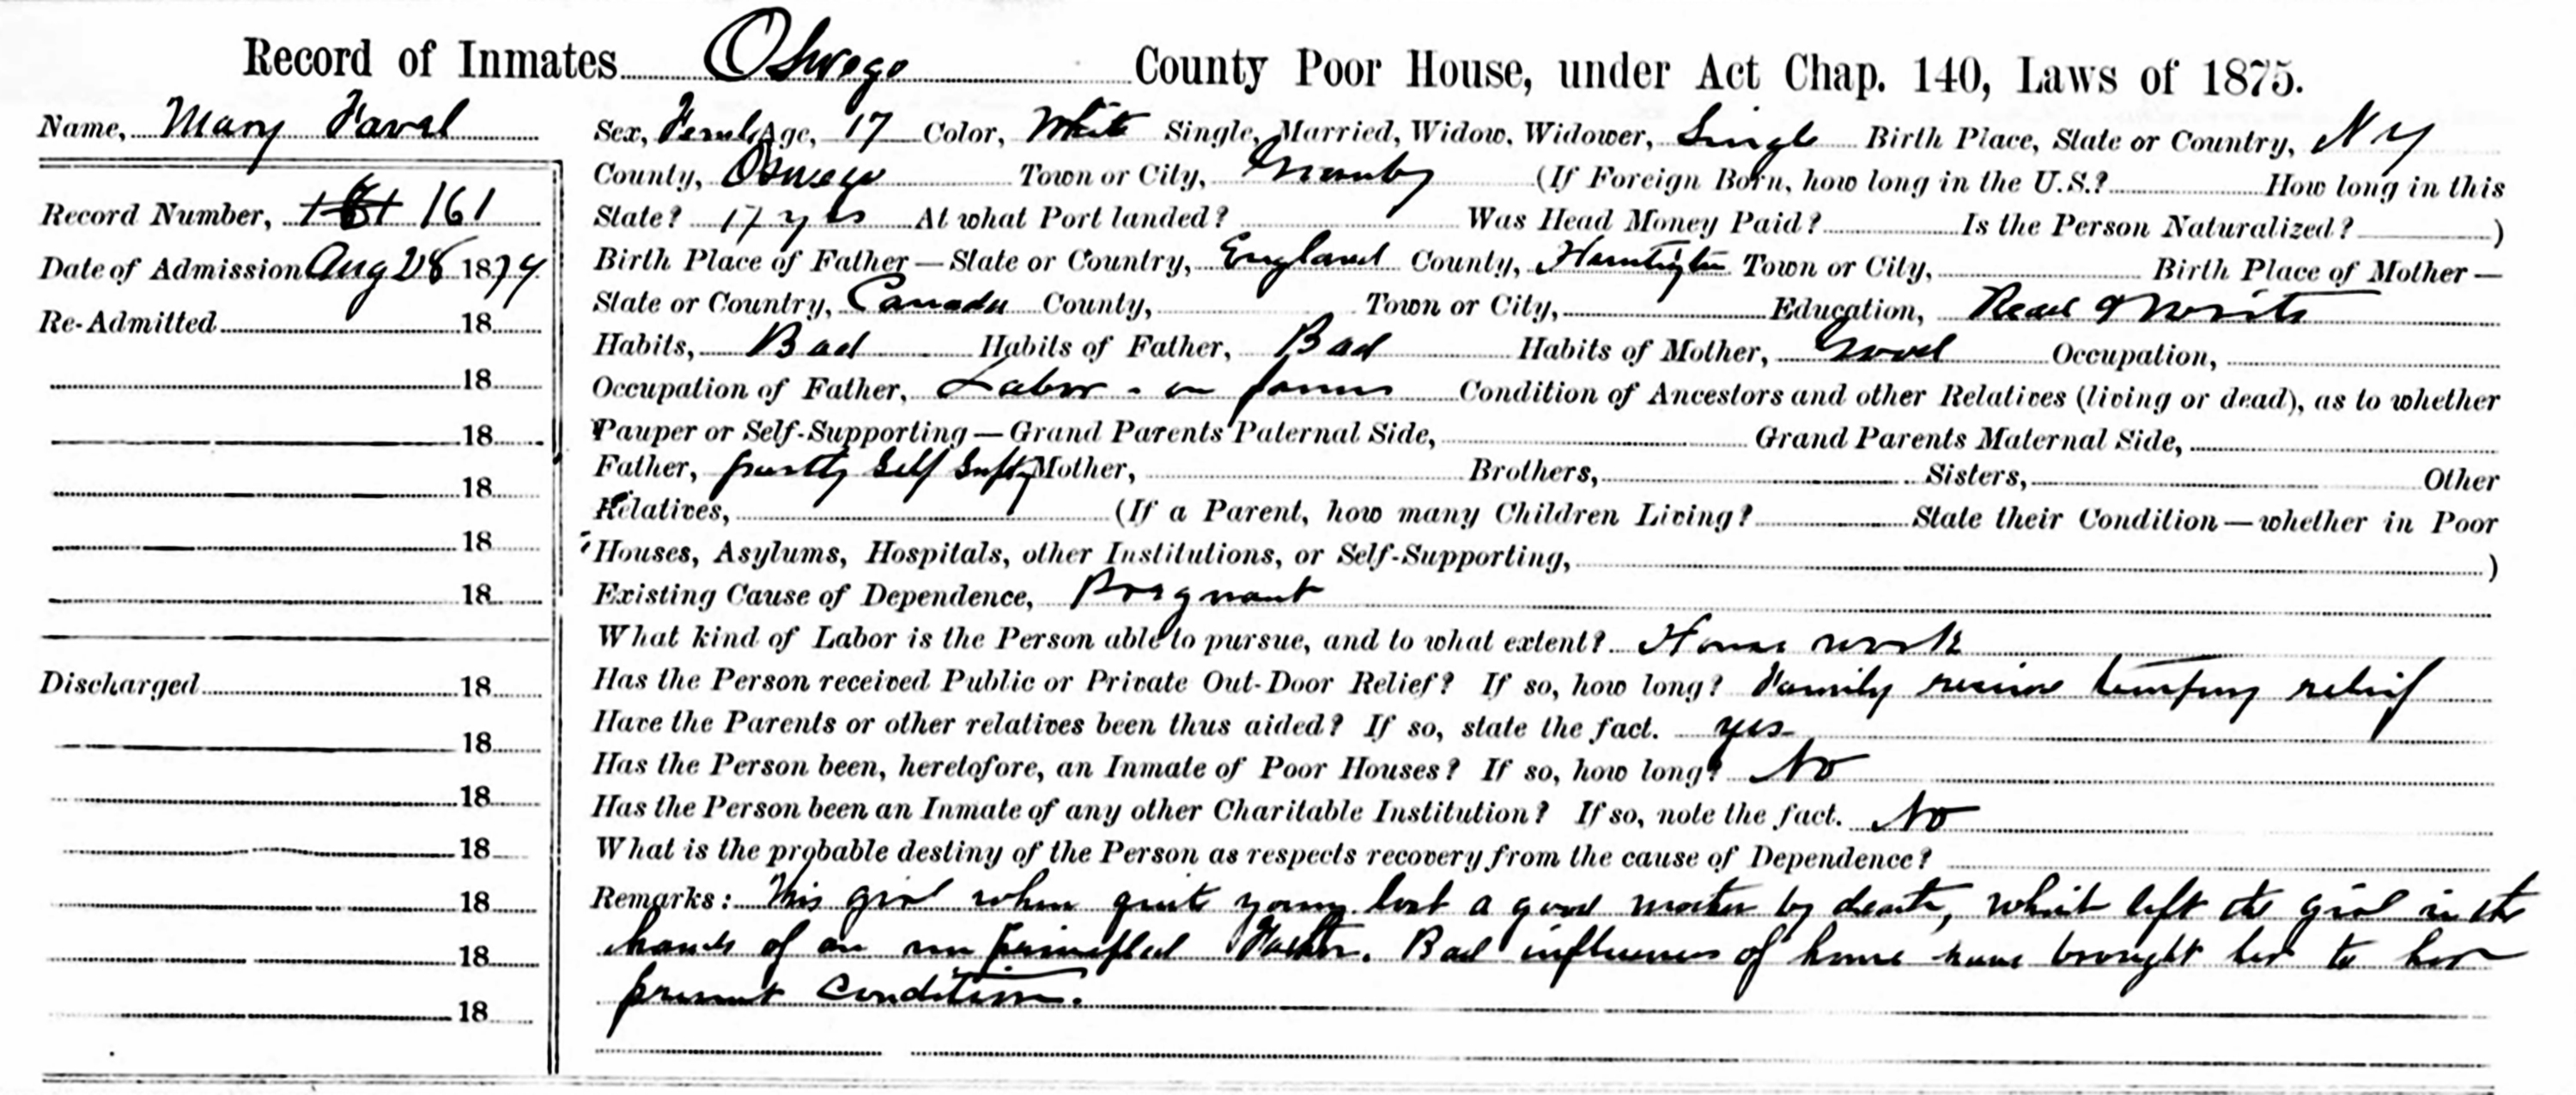 Record of Inmates Oswego County Poor House, under Act Chap. 140, Laws of 1875.
Name, Mary Faval
Record Number, 161
Date of Admission Aug 28 1874
Re-Admitted 18
18
18
18
18
18
Discharged 18
18
18
18
18
18
18
Sex, Female Age, 17 Color, White Single, Married, Widow, Widower, Single Birth Place, State or Country, N Y
County, Oswego Town or City, Granby (If Foreign Born, how long in the U.S.? How long in this
State? 17 yrs At what Port landed? Was Head Money Paid? Is the Person Naturalized? )
Birth Place of Father—State or Country, England County, Town or City, Birth Place of Mother—
State or Country, Canada County, Town or City, Education, Read & Write
Habits, Bad Habits of Father, Bad Habits of Mother, Good Occupation,
Occupation of Father, Labor - on farms Condition of Ancestors and other Relatives (living or dead), as to whether
Pauper or Self-Supporting—Grand Parents Paternal Side, Grand Parents Maternal Side,
Father, partly Self Suptg Mother, Brothers, Sisters, Other
Relatives, (If a Parent, how many Children Living? State their Condition—whether in Poor
Houses, Asylums, Hospitals, other Institutions, or Self-Supporting, )
Existing Cause of Dependence, Pregnant
What kind of Labor is the Person able to pursue, and to what extent? House work
Has the Person received Public or Private Out-Door Relief? If so, how long? Family receive tempory relief
Have the Parents or other relatives been thus aided? If so, state the fact. yes
Has the Person been, heretofore, an Inmate of Poor Houses? If so, how long? No
Has the Person been an Inmate of any other Charitable Institution? If so, note the fact. No
What is the probable destiny of the Person as respects recovery from the cause of Dependence?
Remarks: This girl when quite young lost a good mother by death, which left the girl in the
hands of an unprincipled Father. Bad influences of home have brought her to her
present condition.